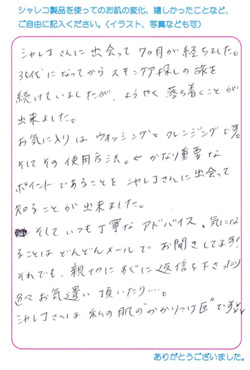 シャレコ製品を使ってのお肌の変化、嬉しかったことなど、
ご自由に記入ください。（イラスト、写真なども可）
シャレコさんに出会って7ヵ月が経ちました。
30代になってからスキンケア探しの旅を
続けていましたが、ようやく落ち着くことが
出来ました。
お気に入りはウォッシングとクレンジングです。
そしてその使用方法。←かなり重要な
ポイントであることをシャレコさんに出会って
知ることが出来ました。
そしていつも丁寧なアドバイス、気にな
ることはどんどんメールでお聞きしてます!
それでも、親切にすぐに返信を下さったり
色々お気遣い頂いたり…。
シャレコさんは私の肌の"かかりつけ医"です
ありがとうございました。